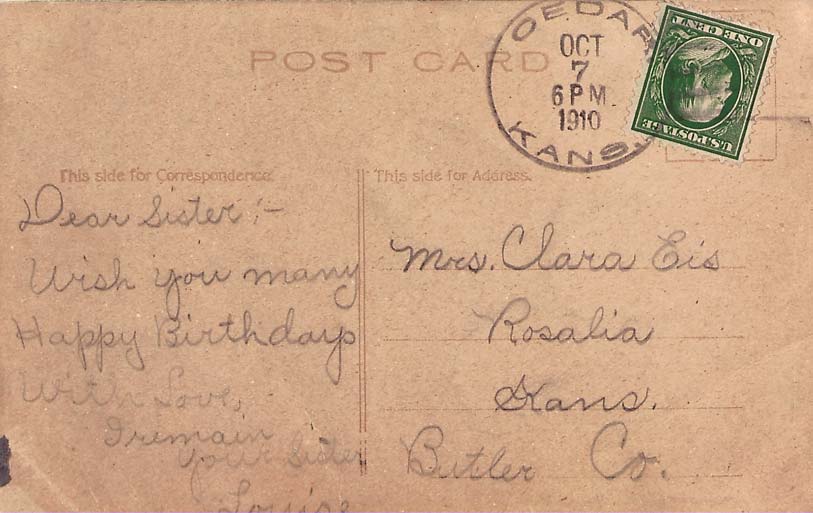 POST CARD
OCT
7
6 PM
1910
KANS.
ONE CENT
U.S. POSTAGE
This side for Correspondence.
Dear Sister:-
Wish you many
Happy Birthdays
With Love,
I remain
your Sister
Louise
This side for Address.
Mrs. Clara Eis
Rosalia
Kans.
Butler Co.